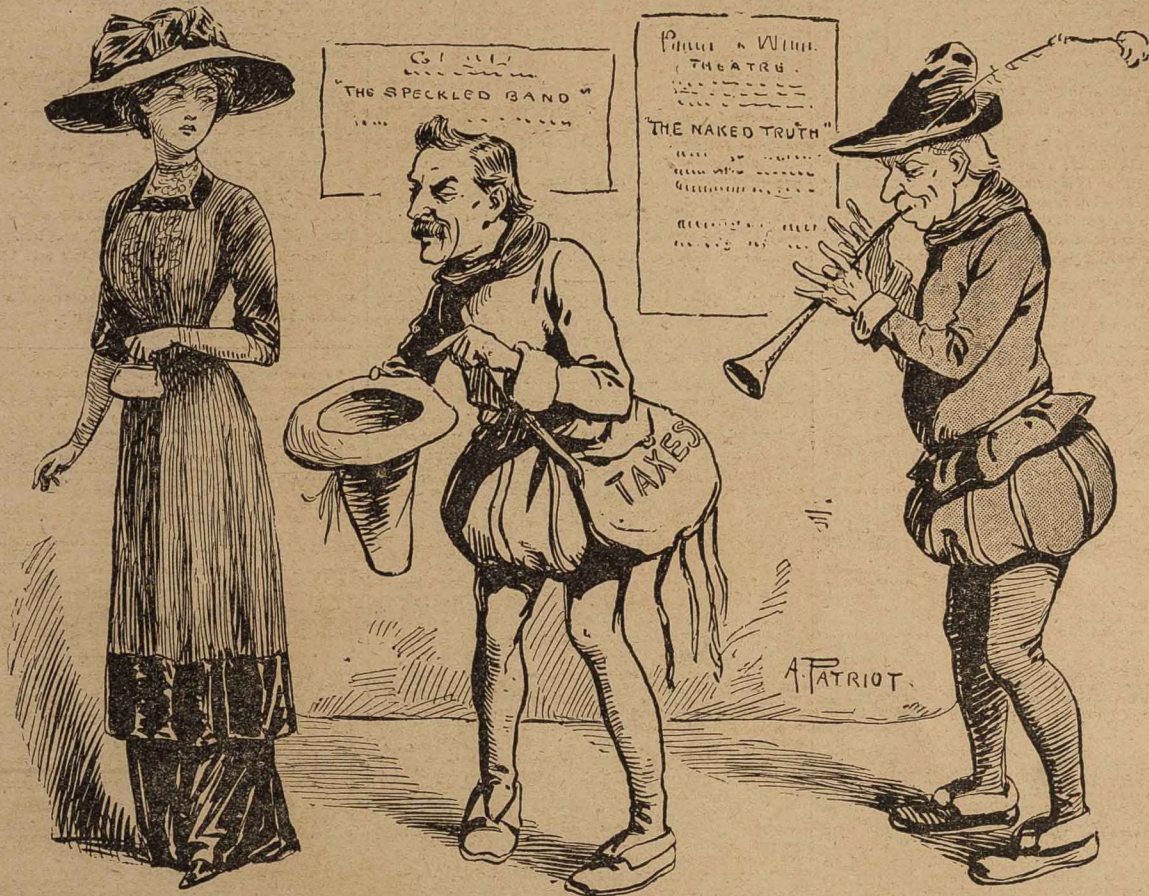 "THE SPECKLED BAND"
THEATRE.
"THE NAKED TRUTH"
TAXES
A. PATRIOT.